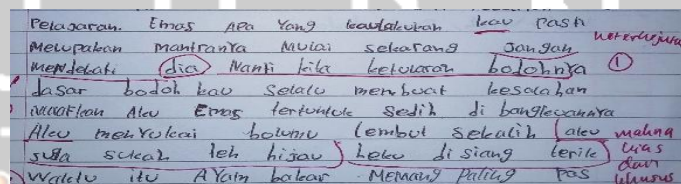 Pelajaran. Emas APA Yang kaulakukan kau pasti
Melupakan mantranya Mulai sekarang Jangan
Mendekati dia Nanti kita ketularan bodohnya ①
dasar bodoh kau Selalu membuat kesalahan
maafkan Aku Emas tertunduk Sedih di
Aku menyukai bolumu lembut Sekalih aku makna
suga sukah teh hijau Beku di siang terik luas
dan
Waktu itu AYam bakar Memang Paling Pas khusus